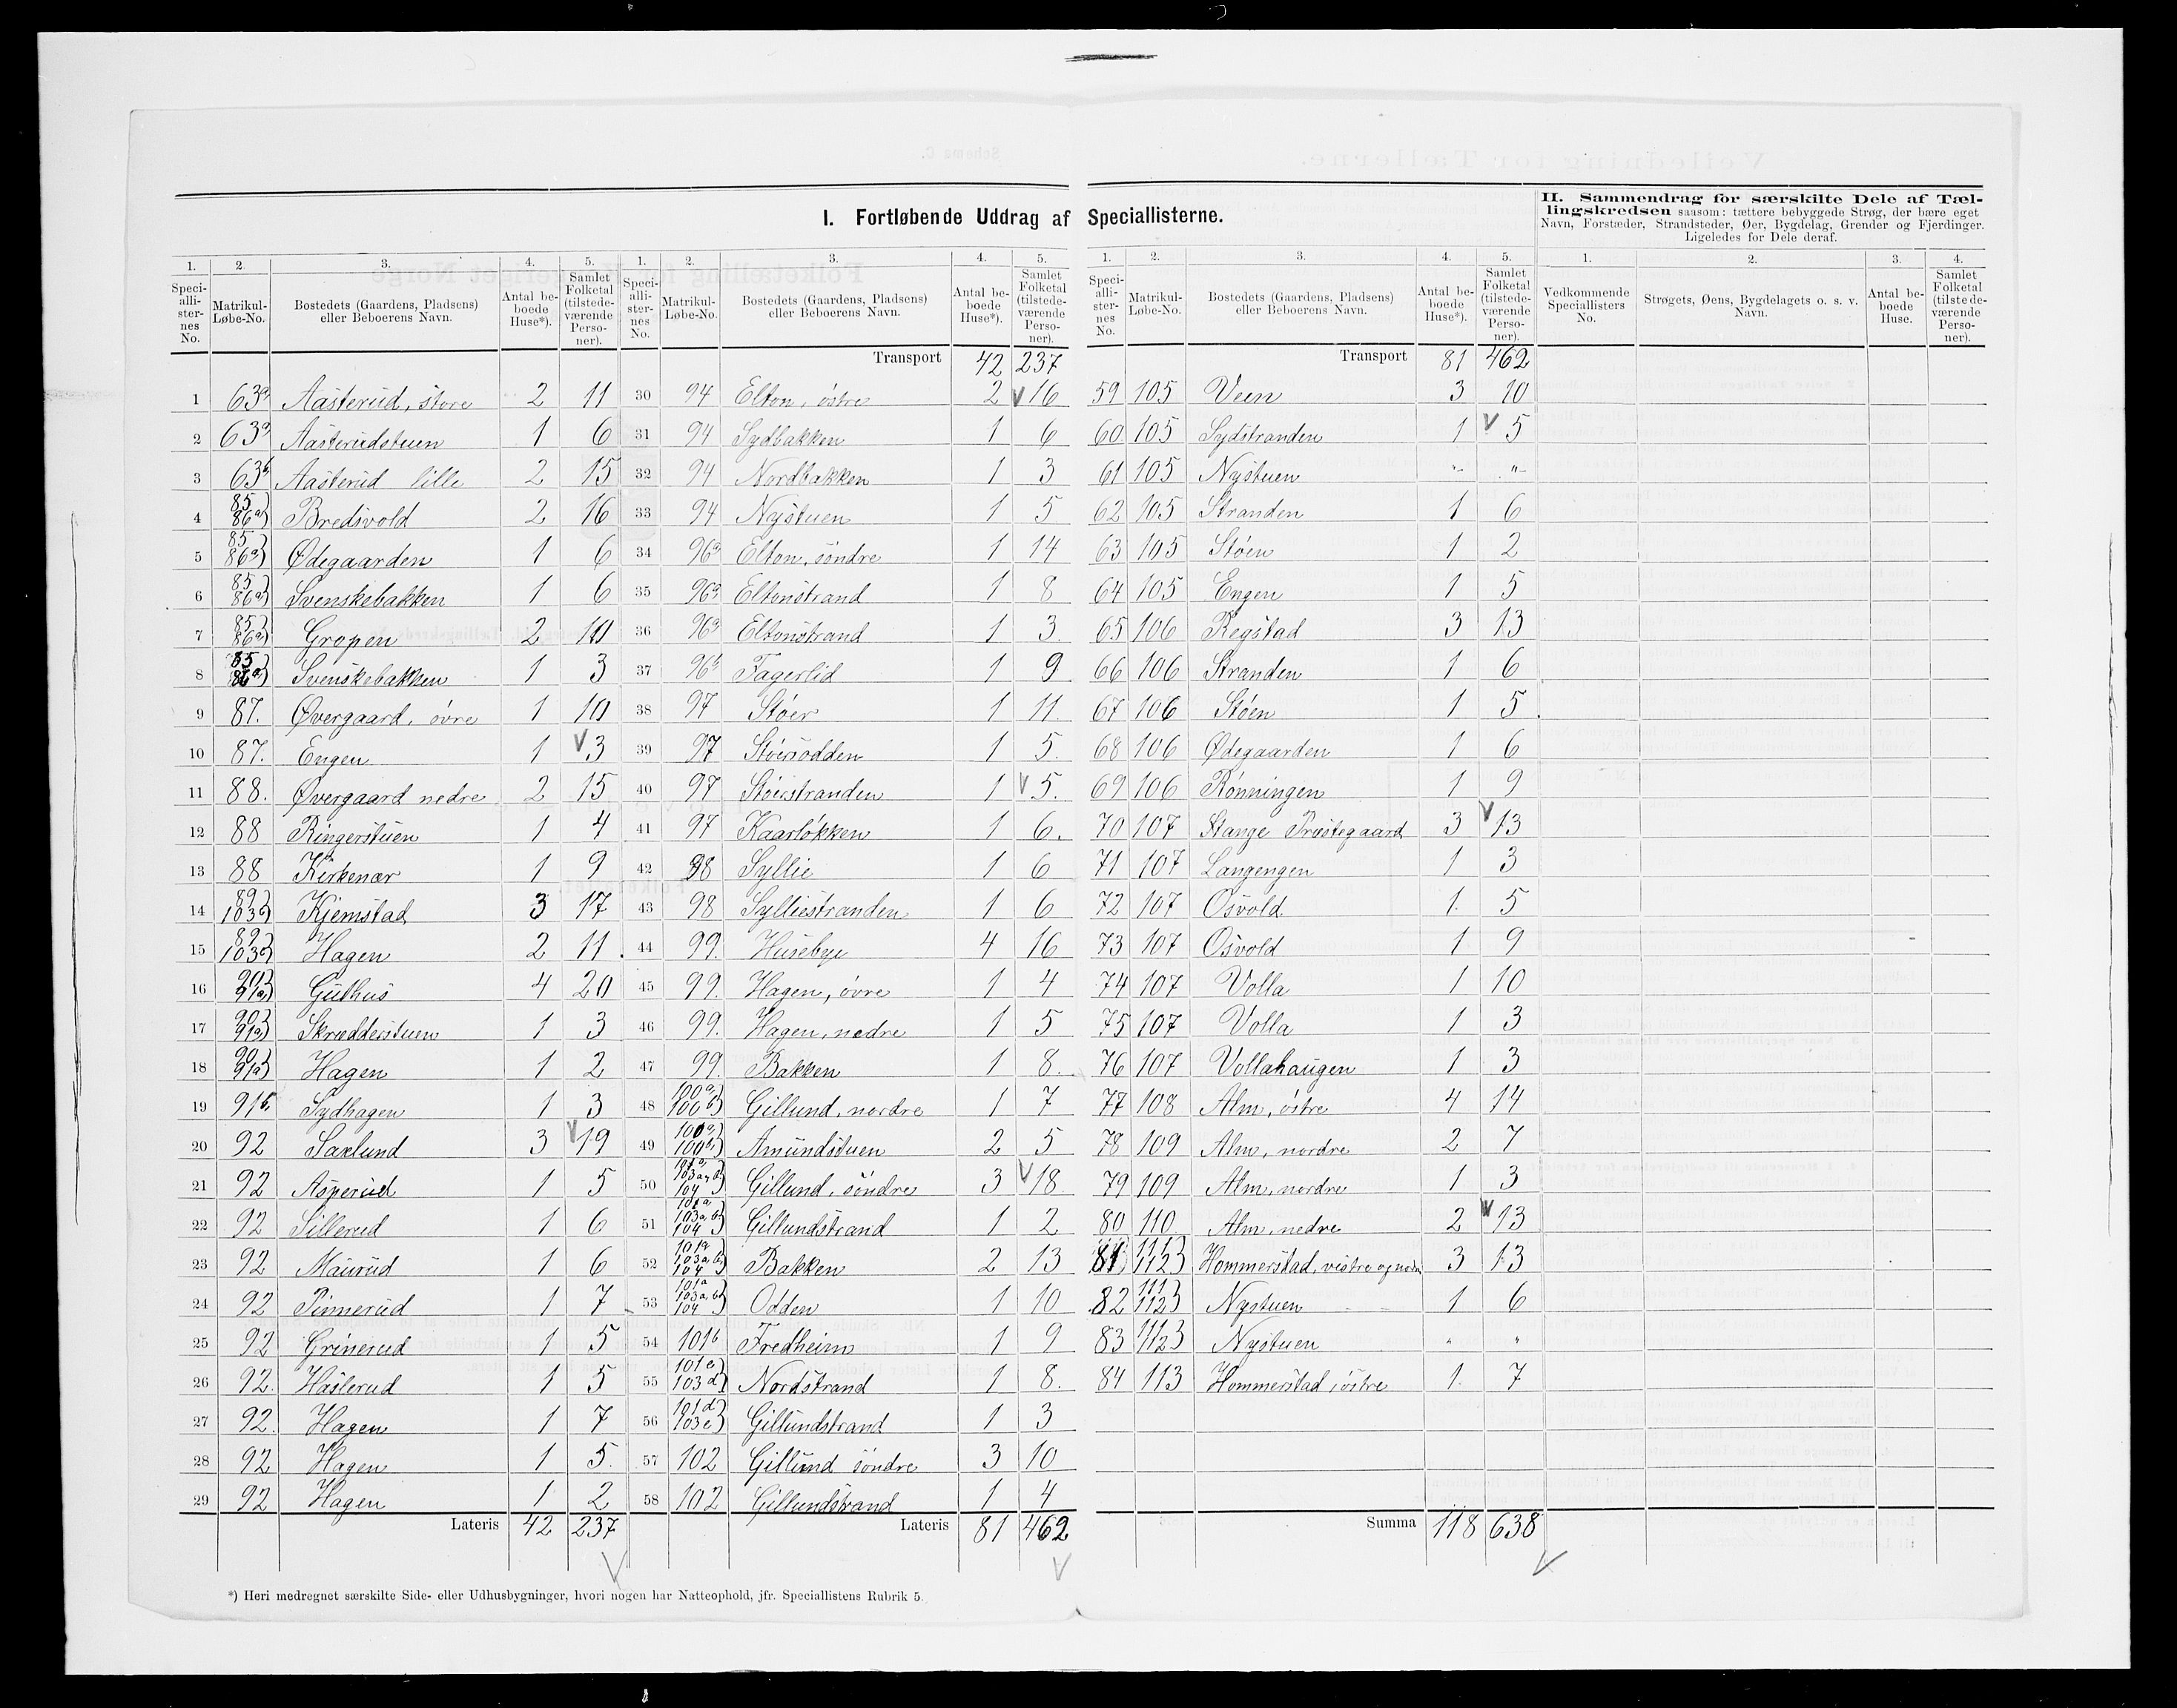 I. Fortløbende Uddrag af Speciallisterne.
II. Sammendrag for særskilte Dele af Tæl-
lingskredsen saasom: tættere bebyggede Strøg, der bære eget
Navn, Forstæder, Strandsteder, Øer, Bygdelag, Grender og Fjerdinger.
Ligeledes for Dele deraf.
1. 2. 3. 4. 5.
Speci-alli-ster-nes No. Matrikul-Løbe-No. Bostedets (Gaardens, Pladsens) eller Beboerens Navn. Antal be-boede Huse*). Samlet Folketal (tilstede-værende Perso-ner).
1 63a Aasterud, store 2 11
2 63a Aasterudstuen 1 6
3 63b Aasterud lille 2 15
4 85 86a) Bredsvold 2 16
5 85 86a) Ødegaarden 1 6
6 85 86a) Svenskebakken 1 6
7 85 86a) Gropen 2 10
8 85 86a) Svenskebakken 1 3
9 87. Øvergaard, övre 1 10
10 87. Engen 1 V 3
11 88. Øvergaard nedre 2 15
12 88 Ringerstuen 1 4
13 88 Kirkenær 1 9
14 89 103c) Kjemstad 3 17
15 89 103c) Hagen 2 11
16 90 91a) Guthus 4 20
17 90 91a) Skrædderstuen 1 3
18 90 91a) Hagen 1 2
19 91b Sydhagen 1 3
20 92 Saxlund 3 V 19
21 92 Asperud 1 5
22 92 Sillerud 1 6
23 92 Maurud 1 6
24 92 Pinnerud 1 7
25 92 Grinerud 1 5
26 92. Haslerud 1 5
27 92. Hagen 1 7
28 92 Hagen 1 5.
29 92 Hagen 1 2
Lateris 42 237
1. 2. 3. 4. 5.
Speci-alli-ster-nes No. Matrikul-Løbe-No. Bostedets (Gaardens, Pladsens) eller Beboerens Navn. Antal be-boede Huse*). Samlet Folketal (tilstede-værende Perso-ner).
Transport 42 237
30 94 Elton, östre 2 V 16
31 94 Sydbakken 1 6
32 94 Nordbakken 1 3
33 94 Nystuen 1 5
34 96a Elton, söndre 1 14
35 96a Eltonstrand 1 8
36 96a Eltonstrand 1 3
37 96b Fagerlid 1 9
38 97 Stöer 1 11.
39 97 Stöersodden 1 5.
40 97 Stöerstranden 1 V 5.
41 97 Kaarlökken 1 6.
42 98 Syllie 1 6
43 98 Sylliestranden 1 6
44 99. Husebye 4 16
45 99. Hagen, övre 1 4
46 99. Hagen, nedre 1 5
47 99. Bakken 1 8.
48 100a, 100b) Gillund, nordre 1 7
49 100a, 100b) Amundstuen 2 5
50 101a, 103a,b 104 Gillund, söndre 3 V 18
51 101a 103a,b 104 Gillundstrand 1 2
52 101a 103a,b 104 Bakken 2 13
53 101a 103a,b 104 Odden 1 10
54 101b Fredheim 1 9
55 101c) 103d) Nordstrand 1 8.
56 101d 103e) Gillundstrand 1 3
57 102 Gillund söndre 3 10
58 102 Gillundstrand 1 4
Lateris 81 462
1. 2. 3. 4. 5.
Speci-alli-ster-nes No. Matrikul-Løbe-No. Bostedets (Gaardens, Pladsens) eller Beboerens Navn. Antal be-boede Huse*). Samlet Folketal (tilstede-værende Perso-ner).
Transport 81 462
59 105 Veen 3 10
60 105 Sydstranden 1 V 5
61 105 Nystuen " "
62 105 Stranden 1 6
63 105 Stöen 1 2
64 105 Engen 1 5
65 106 Regstad 3 13
66 106 Stranden 1 6
67 106 Stöen 1 5.
68 106 Ødegaarden 1 6
69 106 Rönningen 1 9
70 107 Stange Præstegaard 3 V 13
71 107 Langengen 1 3
72 107 Osvold 1. 5
73 107 Osvold 1 9
74 107 Volla 1 10
75 107 Volla 1 3
76 107 Vollahaugen 1 3
77 108 Alm, östre 4 14
78 109 Alm, nordre 2 7
79 109 Alm, nordre 1 3
80 110 Alm, nedre 2 V 13
81 111 112 Hommerstad, vestre og nedre 3 13
82 111 112 Nystuen 1 6
83 111 112 Nystuen " "
84 113 Hommerstad, östre 1. 7
Summa 118 638
1. 2. 3. 4.
Vedkommende Speciallisters No. Strøgets, Øens, Bygdelagets o. s. v. Navn. Antal be-boede Huse. Samlet Folketal (tilstede-værende Perso-ner).
*) Heri medregnet særskilte Side- eller Udhusbygninger, hvori nogen har Natteophold, jfr. Speciallistens Rubrik 5.